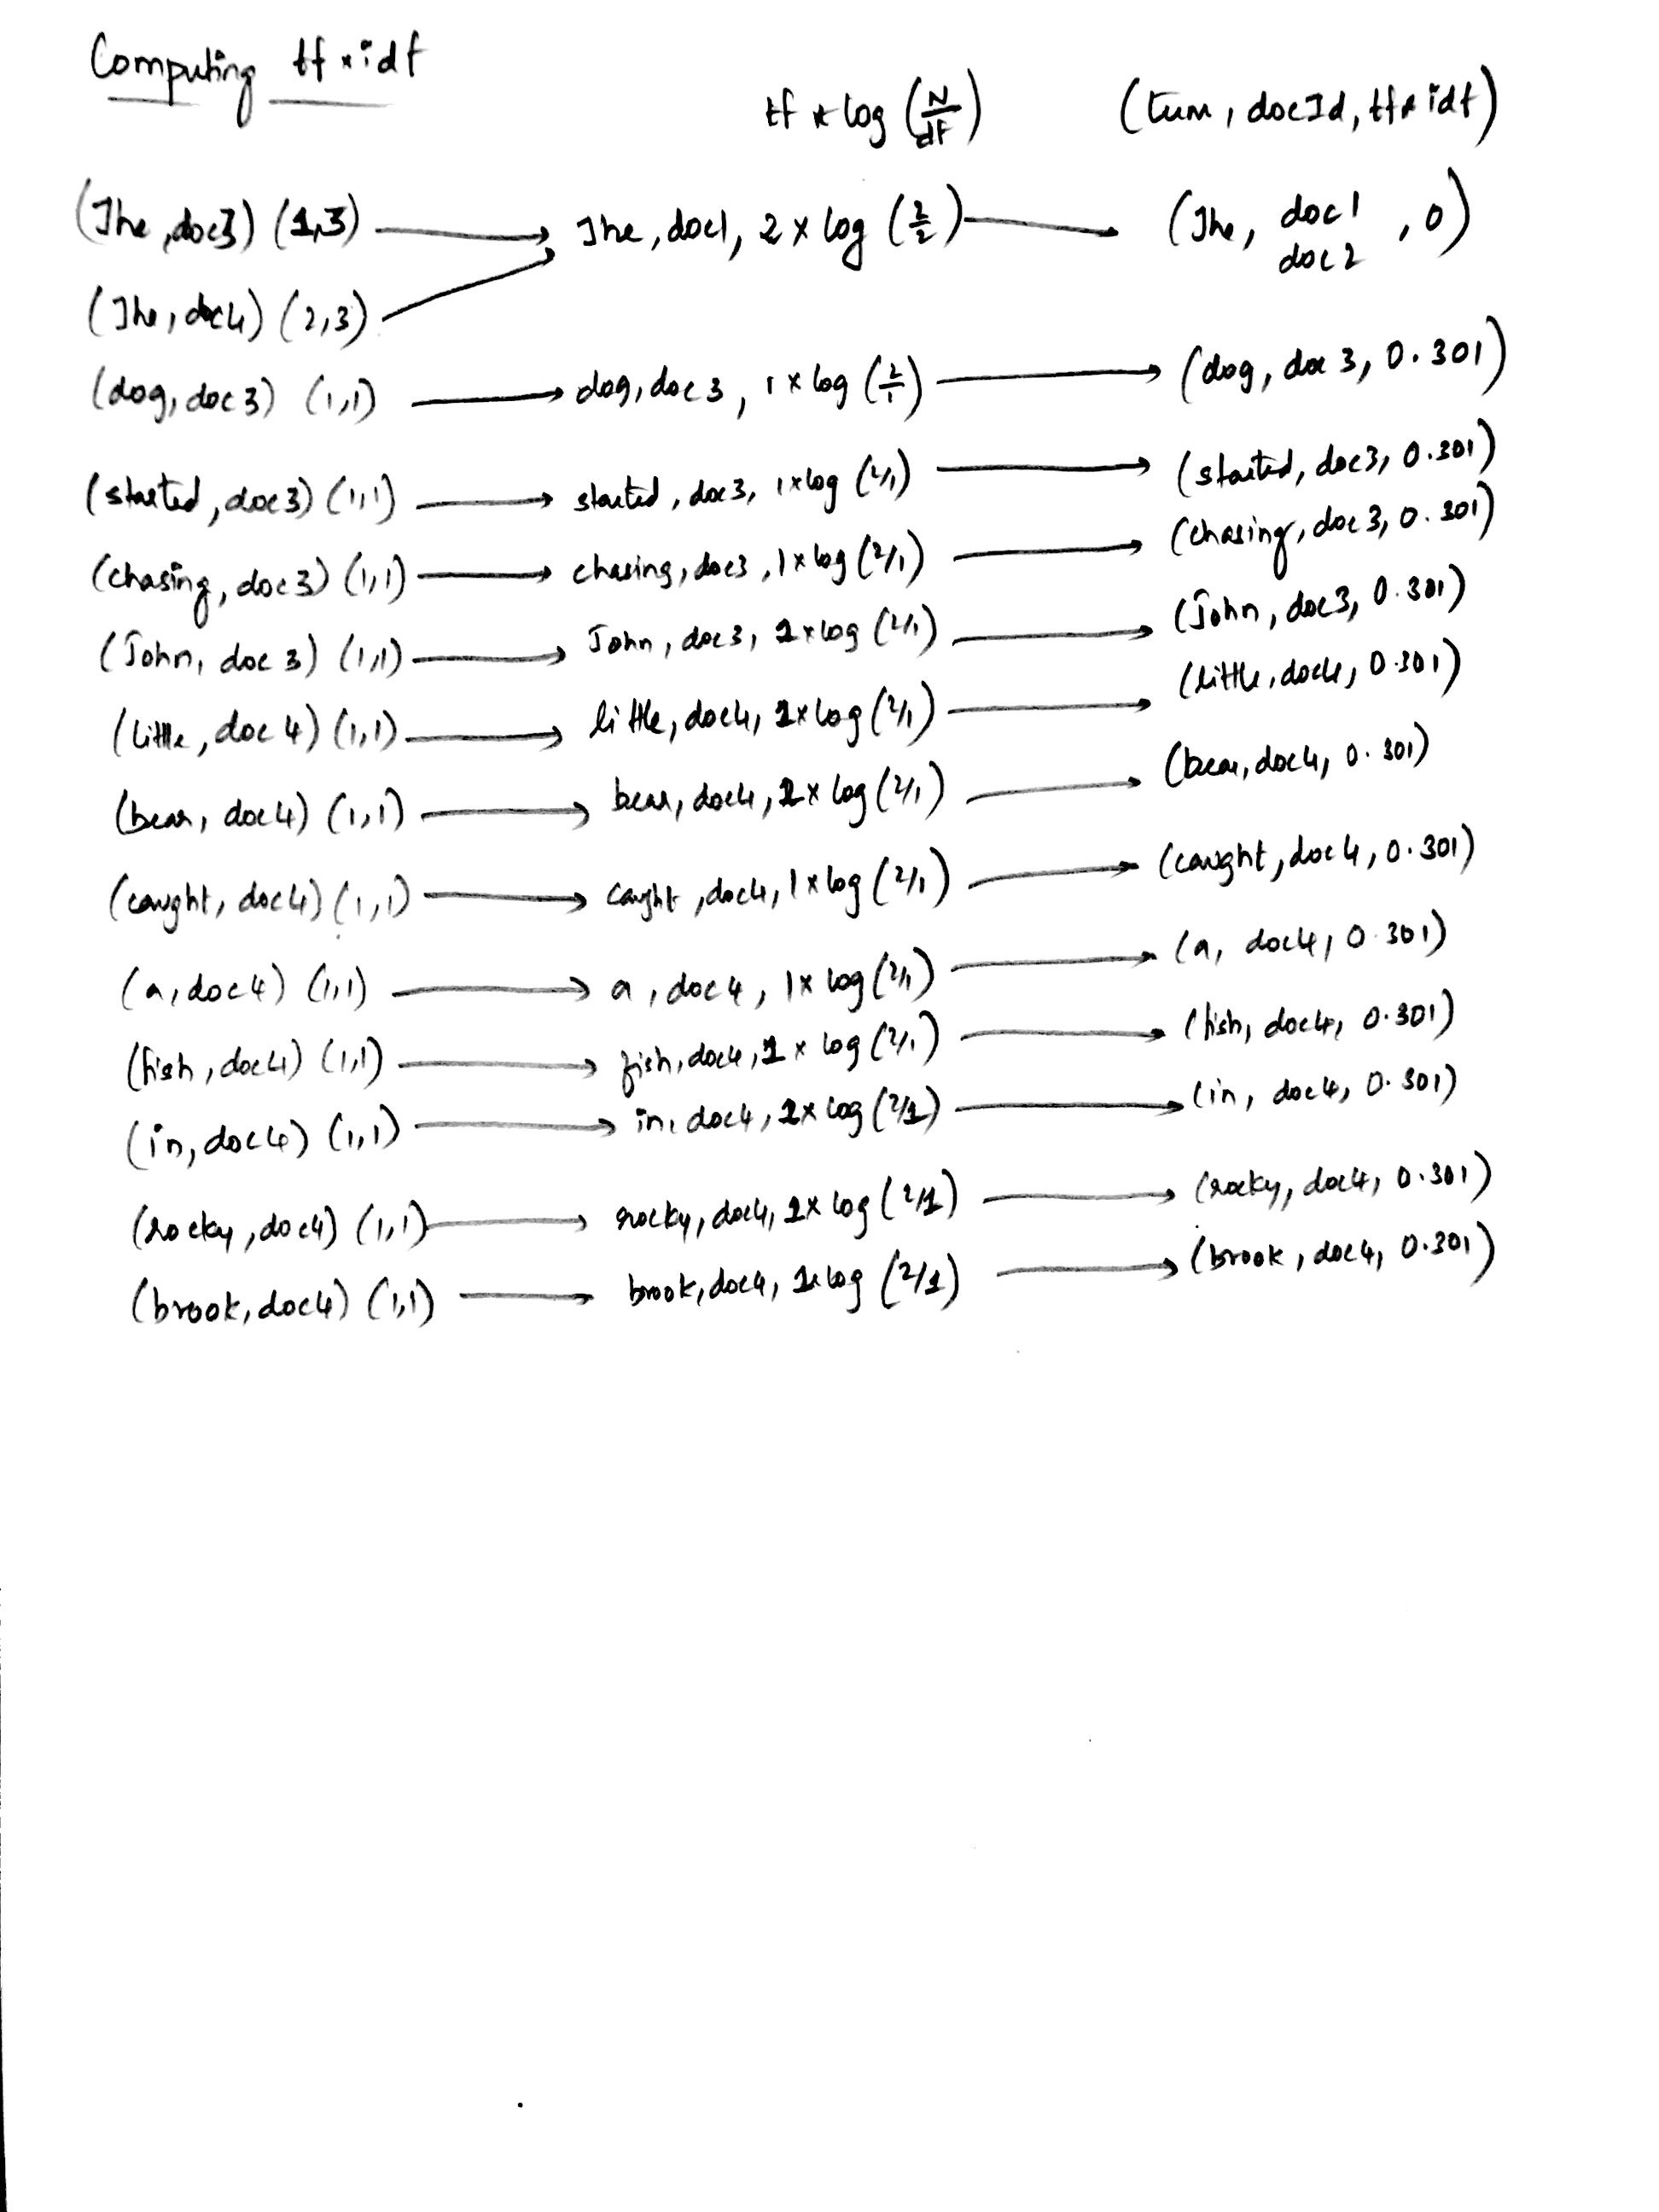 Computing tf * idf
tf * log (N/df) (term, docId, tf * idf)
(The, doc3) (1,3) → The, doc1, 2 x log (2/2) → (The, doc1 doc2, 0)
(The, doc4) (2,3)
(dog, doc3) (1,1) → dog, doc3, 1 x log (2/1) → (dog, doc 3, 0.301)
(started, doc3) (1,1) → started, doc3, 1 x log (2/1) → (started, doc3, 0.301)
(chasing, doc3) (1,1) → chasing, doc3, 1 x log (2/1) → (chasing, doc3, 0.301)
(John, doc 3) (1,1) → John, doc3, 1 x log (2/1) → (John, doc3, 0.301)
(little, doc 4) (1,1) → little, doc4, 1 x log (2/1) → (little, doc4, 0.301)
(bear, doc4) (1,1) → bear, doc4, 1 x log (2/1) → (bear, doc4, 0.301)
(caught, doc4) (1,1) → caught, doc4, 1 x log (2/1) → (caught, doc4, 0.301)
(a, doc4) (1,1) → a, doc4, 1 x log (2/1) → (a, doc4, 0.301)
(fish, doc4) (1,1) → fish, doc4, 1 x log (2/1) → (fish, doc4, 0.301)
(in, doc4) (1,1) → in, doc4, 1 x log (2/1) → (in, doc4, 0.301)
(rocky, doc4) (1,1) → rocky, doc4, 1 x log (2/1) → (rocky, doc4, 0.301)
(brook, doc4) (1,1) → brook, doc4, 1 x log (2/1) → (brook, doc4, 0.301)